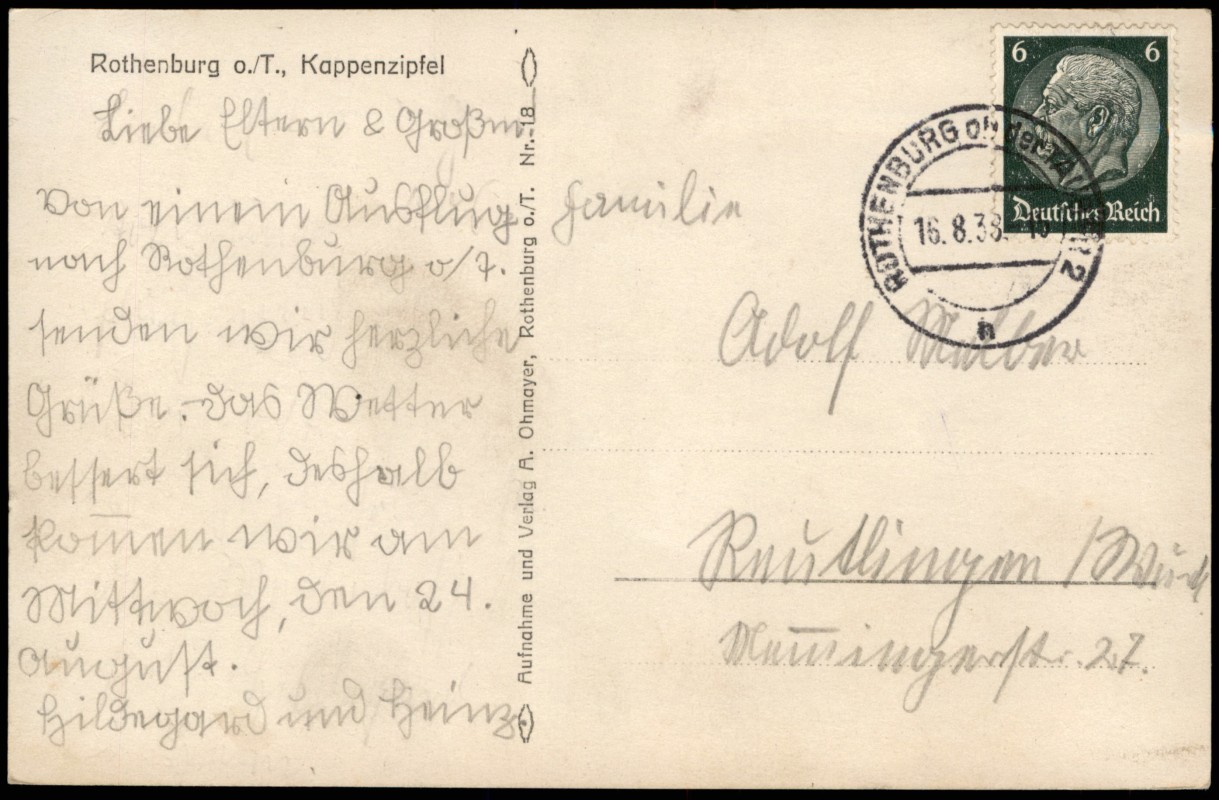 Rothenburg o./T., Kappenzipfel
Liebe Eltern & Großm.
Von einem Ausflug
nach Rothenburg o/T.
senden wir herzliche
Grüße. Das Wetter
bessert sich, deshalb
kom̅en wir am
Mittwoch, den 24.
August.
Hildegard und Heinz.
Aufnahme und Verlag A. Ohmayer, Rothenburg o./T. Nr. 18
6 6
Deutsches Reich
ROTHENBURG ob der TAUBER 2
16.8.38.
h
Familie
Adolf
Reutlingen /
27.